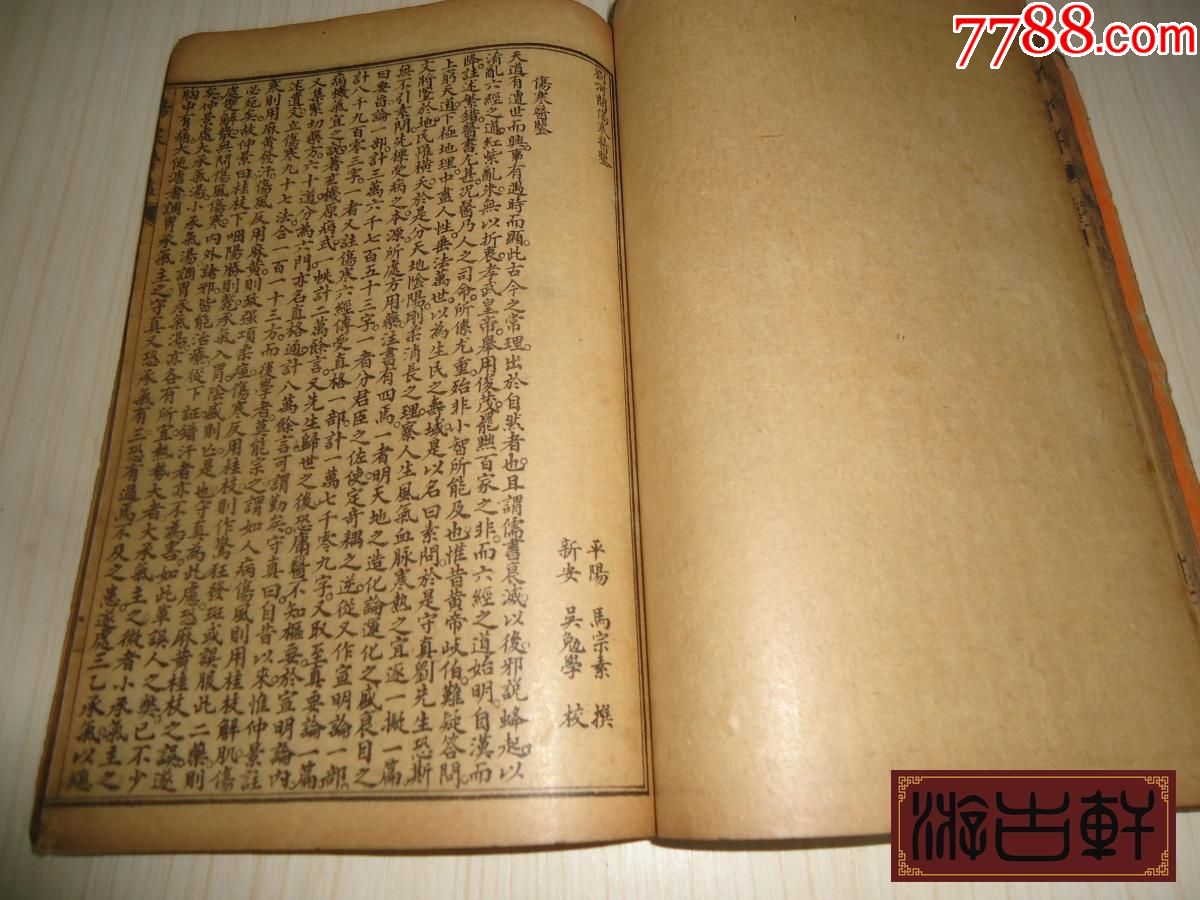 7788.com
劉河間傷寒醫鑒
平陽 馬宗素 撰
新安 吳勉學 校
傷寒醫鑒
天道有遺世而興事有遇時而顯此古今之常理出於自然者也且謂儒書衰滅以後邪說蜂起以
淆亂六經之道紅紫亂朱無以折衷孝武皇帝舉用俊茂罷黜百家之非而六經之道始明自漢而
降註述繁錯醫書尤甚況醫乃人之司命所係尤重殆非小智所能及也惟昔黃帝岐伯難疑答問
上窮天道下極地理中盡人性垂法萬世以為生民之壽域是以名曰素問於是守真劉先生恐斯
文將墜於地民罹橫夭於是分天地陰陽剛柔消長之理察人生風氣血脉寒熱之宜返一撥一篇
無不引素問先標受病之本源所處方用藥注書有四焉一者明天地之造化論運化之盛衰目之
曰要旨論一部計三萬六千七百五十三字一者分君臣之佐使定奇耦之逆從又作宣明論一部
計八千九百零三字一者又註傷寒六經傳受直格一部計一萬七千零九字又取至真要論一篇
病機氣宜之說著玄機原病式一帙計二萬餘言又先生歸世之後恐庸醫不知樞要於宣明論內
又集緊切藥方六十道分為六門亦名直格通計八萬餘言可謂勤矣守真曰自昔以來惟仲景註
述遺文立傷寒九十七法合一百一十三方而後學者莫能宗之謂如人病傷風則用桂枝解肌傷
寒則用麻黃發汗傷風反用麻黃則致強項柔痙傷寒反用桂枝則作驚狂發斑或誤服此二藥則
必死矣故仲景曰桂枝下咽陽勝則斃承氣入胃陰盛則亡是也守真為此慮恐麻黃桂枝之誤遂
處雙解散無問傷風傷寒內外諸邪皆能治療從下証錯汗者亦不為害如此革誤人之弊已不少
矣仲景處大承氣湯小承氣湯調胃承氣湯亦各有所宜熱勢大者大承氣主之微者小承氣主之
胸中有痛大便溏者調胃承氣主之守真又恐承氣有三恐有過焉不及之患遂處三乙承氣以總
游古軒